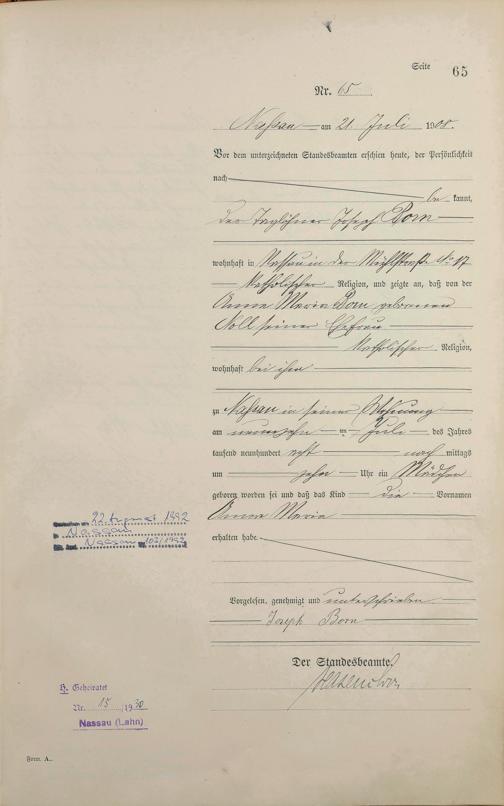 Seite 65
Nr. 65
Nassau am 21. Juli 1908.
Vor dem unterzeichneten Standesbeamten erschien heute, der Persönlichkeit
nach
be kannt,
der Taglöhner Joseph Born
wohnhaft in Nassau in der Mühlstraße No 17
katholischer Religion, und zeigte an, daß von der
Anna Maria Born geborenen
Noll seiner Ehefrau
katholischer Religion,
wohnhaft bei ihm
zu Nassau in seiner Wohnung
am neunzehn ten Juli des Jahres
tausend neunhundert acht nach mittags
um zehn Uhr ein Mädchen
geboren worden sei und daß das Kind die Vornamen
Anna Maria
erhalten habe.
Vorgelesen, genehmigt und unterschrieben
Joseph Born
Der Standesbeamte.
22. August 1992
in Nassau
Nassau 103/1992
H. Geheiratet
Nr. 15 /1930
Nassau (Lahn)
Form. A.